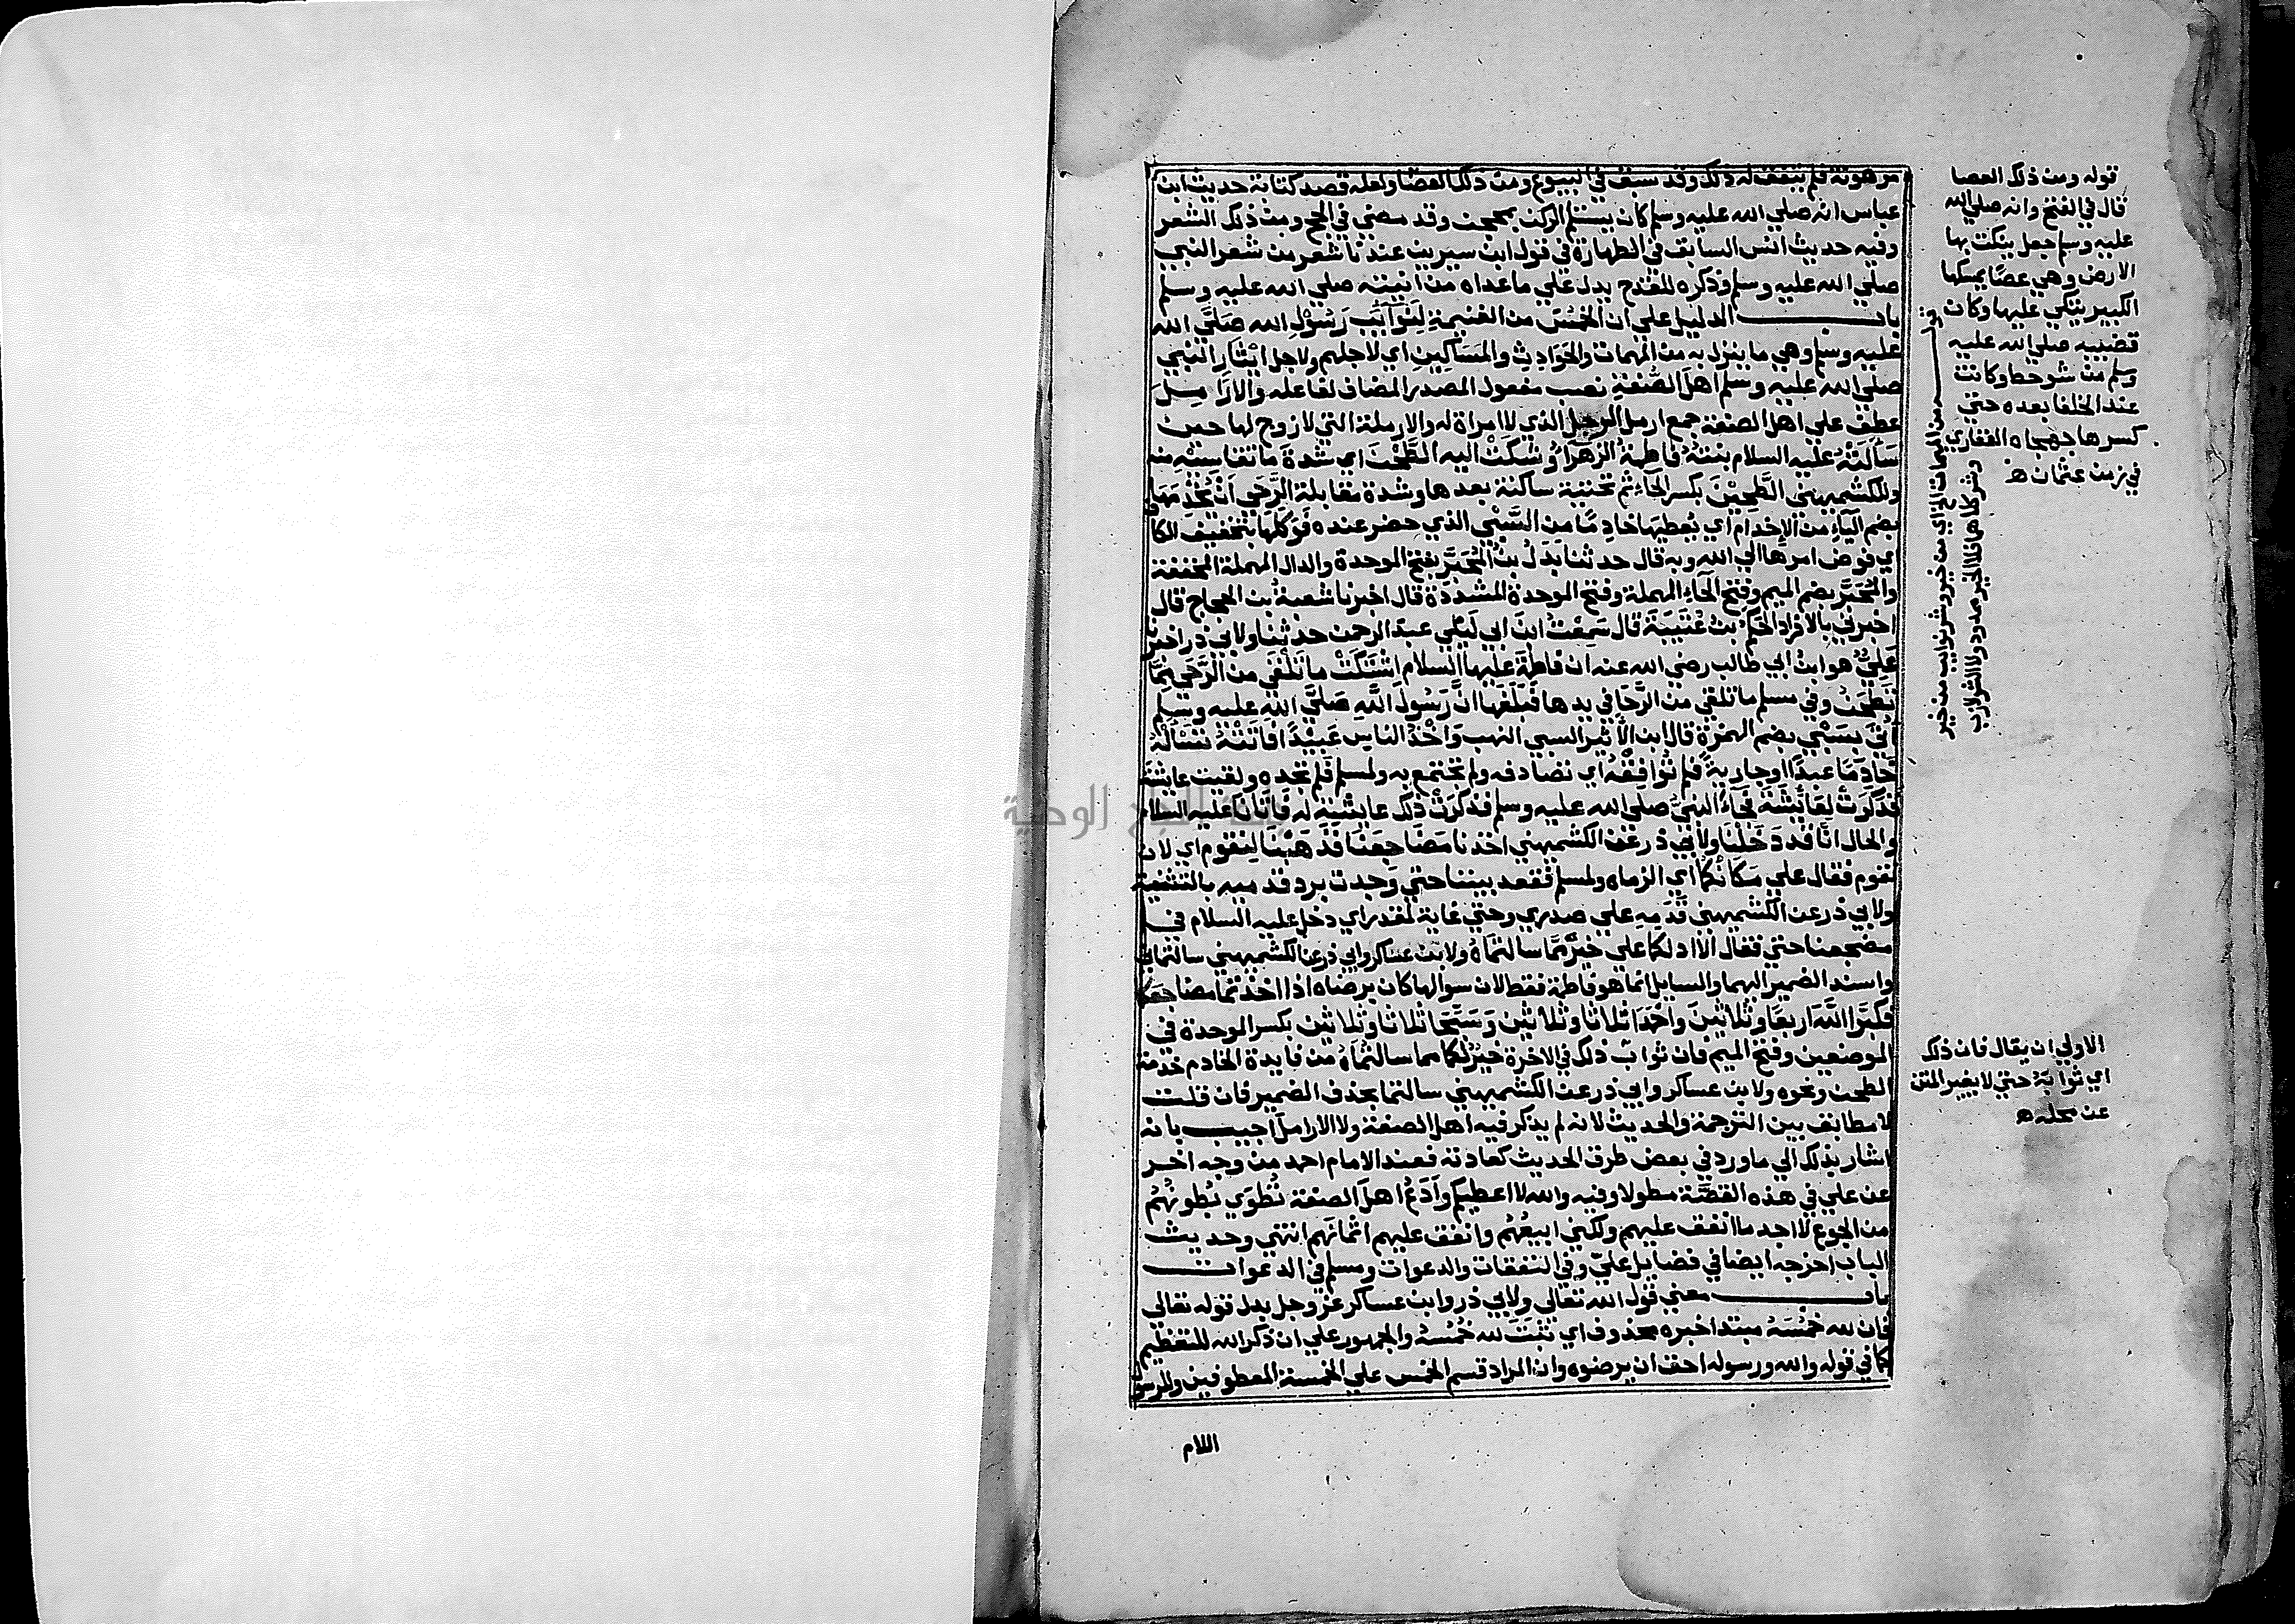 مرهونة فلم يتفق له ذلك وقد سبق في البيوع ومن ذلك العصا ولعله قصد كتابة حديث ابن
عباس انه صلي الله عليه وسلم كان يستلم الركن بمحجن وقد مضي في الحج ومن ذلك الشعر
وفيه حديث انس السابق في الطهارة في قول ابن سيرين عندنا شعر من شعر النبي
صلي الله عليه وسلم وذكره للقدح يدل علي ما عداه من انيته صلي الله عليه وسلم
باب الدليل علي ان الخُمُسَ من الغنيمةِ لِنَوايِبِ رَسُوْلِ الله صَلَّي الله
عليه وسلم وهي ما ينزل به من المهمات والحَوَادِثِ والمَسَاكِينِ اي لاجلهم ولاجل ايْثَارِ النبي
صلي الله عليه وسلم اهلَ الصُّفةِ نصب مفعول المصدر المضاف لفاعله والارَامِلَ
عطف علي اهل الصفة جمع ارمل الرجل الذي لا امراة له والارملة التي لا زوج لها حين
سَاَلَتْهُ عليه السلام بنتهُ فاطمةُ الزهراُ وَشَكَتْ اليه الطَّحْنَ اي شدةَ ما تقاسيْهِ منه
وللكشميهني الطَّحِيْنَ بكسر الحاءِ ثم تحتية ساكنة بعدها وشدة مقابلة الرَّحَي اَنْ يُخْدِمَهَا
بضم الياءِ من الاِخدام اي يُعطيها خادِمًا من السَّبْيِ الذي حضر عنده فَوَكَلَها بتخفيف الكا
اي فوض امرَها الي الله وبه قال حدثنا بَدَلُ بنُ المُحَبَّرِ بفتح الموحدة والدال المهملة المخففة
والمُحَبَّرِ بضم الميم وفتح الحاءِ المهملة وفتح الموحدة المشددة قال اخبرنا شعبةُ بن الحجاج قال
اخبرني بالافراد الحَكَمُ بنُ عُتَيْبَةَ قال سَمِعْتُ ابنَ ابي لَيْلَي عبدَ الرحمن حدثنا ولابي ذر اخبرنا
عَلِيٌّ هو ابن ابي طالب رضي الله عنه ان فاطمةَ عليها السلام اشتَكَتْ ما تَلْقَي من الرَّحَي مِمَّا
تَطحَنُ وفي مسلم ما تلقي من الرَّحَا في يدها فَبَلَغَها انَّ رَسُولَ اللَّهِ صَلَّيَ اللَّهُ عليه وسلم
اُتِيَ بِسَبْيٍ بضم الهمزة قال ابن الأثير السبي النهب وَاَخْذُ الناس عَبِيْدًا فَاَتَتْهُ تَسْاَلُهُ
خَادِمًا عبدًا او جاريةً فلم تُوَافِقْهُ اي تصادفه ولم تجتمع به ولمسلم فلم تجده ولقيت عايشة
فذَكَرَتْ لِعَائِشَةَ فَجَاءَ النبيُّ صلي الله عليه وسلم فذكرَتْ ذلك عايشة له فَاَتَانا عليه السلام
والحال انَّا قد دَخَلْنَا ولابي ذر عن الكشميهني اخذنا مَضَاجِعَنَا فَذَهَبْنَا لِنَقُوم اي لان
نقوم فقال علي مَكَانِكُما اي الزماه ولمسلم فقعد بيننا حتي وَجدت برد قدميه بالتثنية
ولابي ذر عن الكشميهني قَدَمِهِ علي صدري وحتي غاية لمقدر اي دخل عليه السلام في
مضجعنا حتي فقال الا ادلكما علي خيْرٍ مَّا سالتمَاهُ ولابن عساكر وابي ذر عن الكشميهني سالتماني
واسند الضمير اليهما والسايل انما هو فاطمة فقط لان سوالها كان برضاه اذا اخذتما مضاجعكما
فكَبِّرَا اللَّهَ اربعًا وثلاثينَ واحْمَدَا ثلاثا وثلاثينَ وَسَبِّحَا ثلاثا وثلاثين بكسر الموحدة في
الموضعين وفتح الميم فان ثوابَ ذلك في الاخرة خيْرٌ لكما مما سالتُمَاهُ من فايدة الخادم خدمة
الطحن ونحوه ولابن عساكر وابي ذر عن الكشميهني سالتما بحذف الضمير فان قلت
لا مطابقة بين الترجمة والحديث لانه لم يذكر فيه اهل الصفة ولا الارامل اجيب بانه
اشار بذلك الي ما ورد في بعض طرق الحديث كعادته فعند الامام احمد من وجه اخر
عن علي في هذه القصَّة مطولا وفيه والله لا اعطيكم وَاَدَعُ اهلَ الصفة تُطوَي بُطونُهُم
من الجوع لا اجد ما انفق عليهم ولكني ابيعُهُم وانفق عليهم اثمانَهم انتهي وحديث
الباب اخرجه ايضا في فضايل عليٍّ وفي النفقات والدعوات ومسلم في الدعوات
باب معني قول الله تعالي ولابي ذر وابن عساكر عز وجل بدل قوله تعالي
فان لله خُمُسَهُ مبتدا خبره محذوف اي ثبتَ لله خُمُسهُ والجمهور علي ان ذكر الله للتعظيم
كما في قوله والله ورسوله احق ان يرضوه وان المراد قسم الخمس علي الخمسة المعطوفين وللرسول
اللام
قوله ومن ذلك العصا
قال في الفتح وانه صلي الله
عليه وسلم جعل ينكت بها
الارض وهي عصًا يمسكها
الكبير يتكي عليها وكان
قضيبه صلي الله عليه
وسلم من شوحط وكانت
عند الخلفا بعده حتي
كسرها جهجاه الغفاري
في زمن عثمان ه
قوله من المهمات الخ اي من خير وشر نوايب من خير
وشر كلاهما فلا الخير ممدود ولا الشر لازب
الاولي ان يقال فان ذلك
اي ثوابَهُ حتي لا يغير المتن
عن محله ه